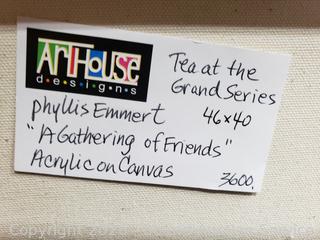 ArtHouse
designs
Tea at the
Grand Series
46x40
phyllis Emmert
"A Gathering of Friends"
Acrylic on Canvas
3600.